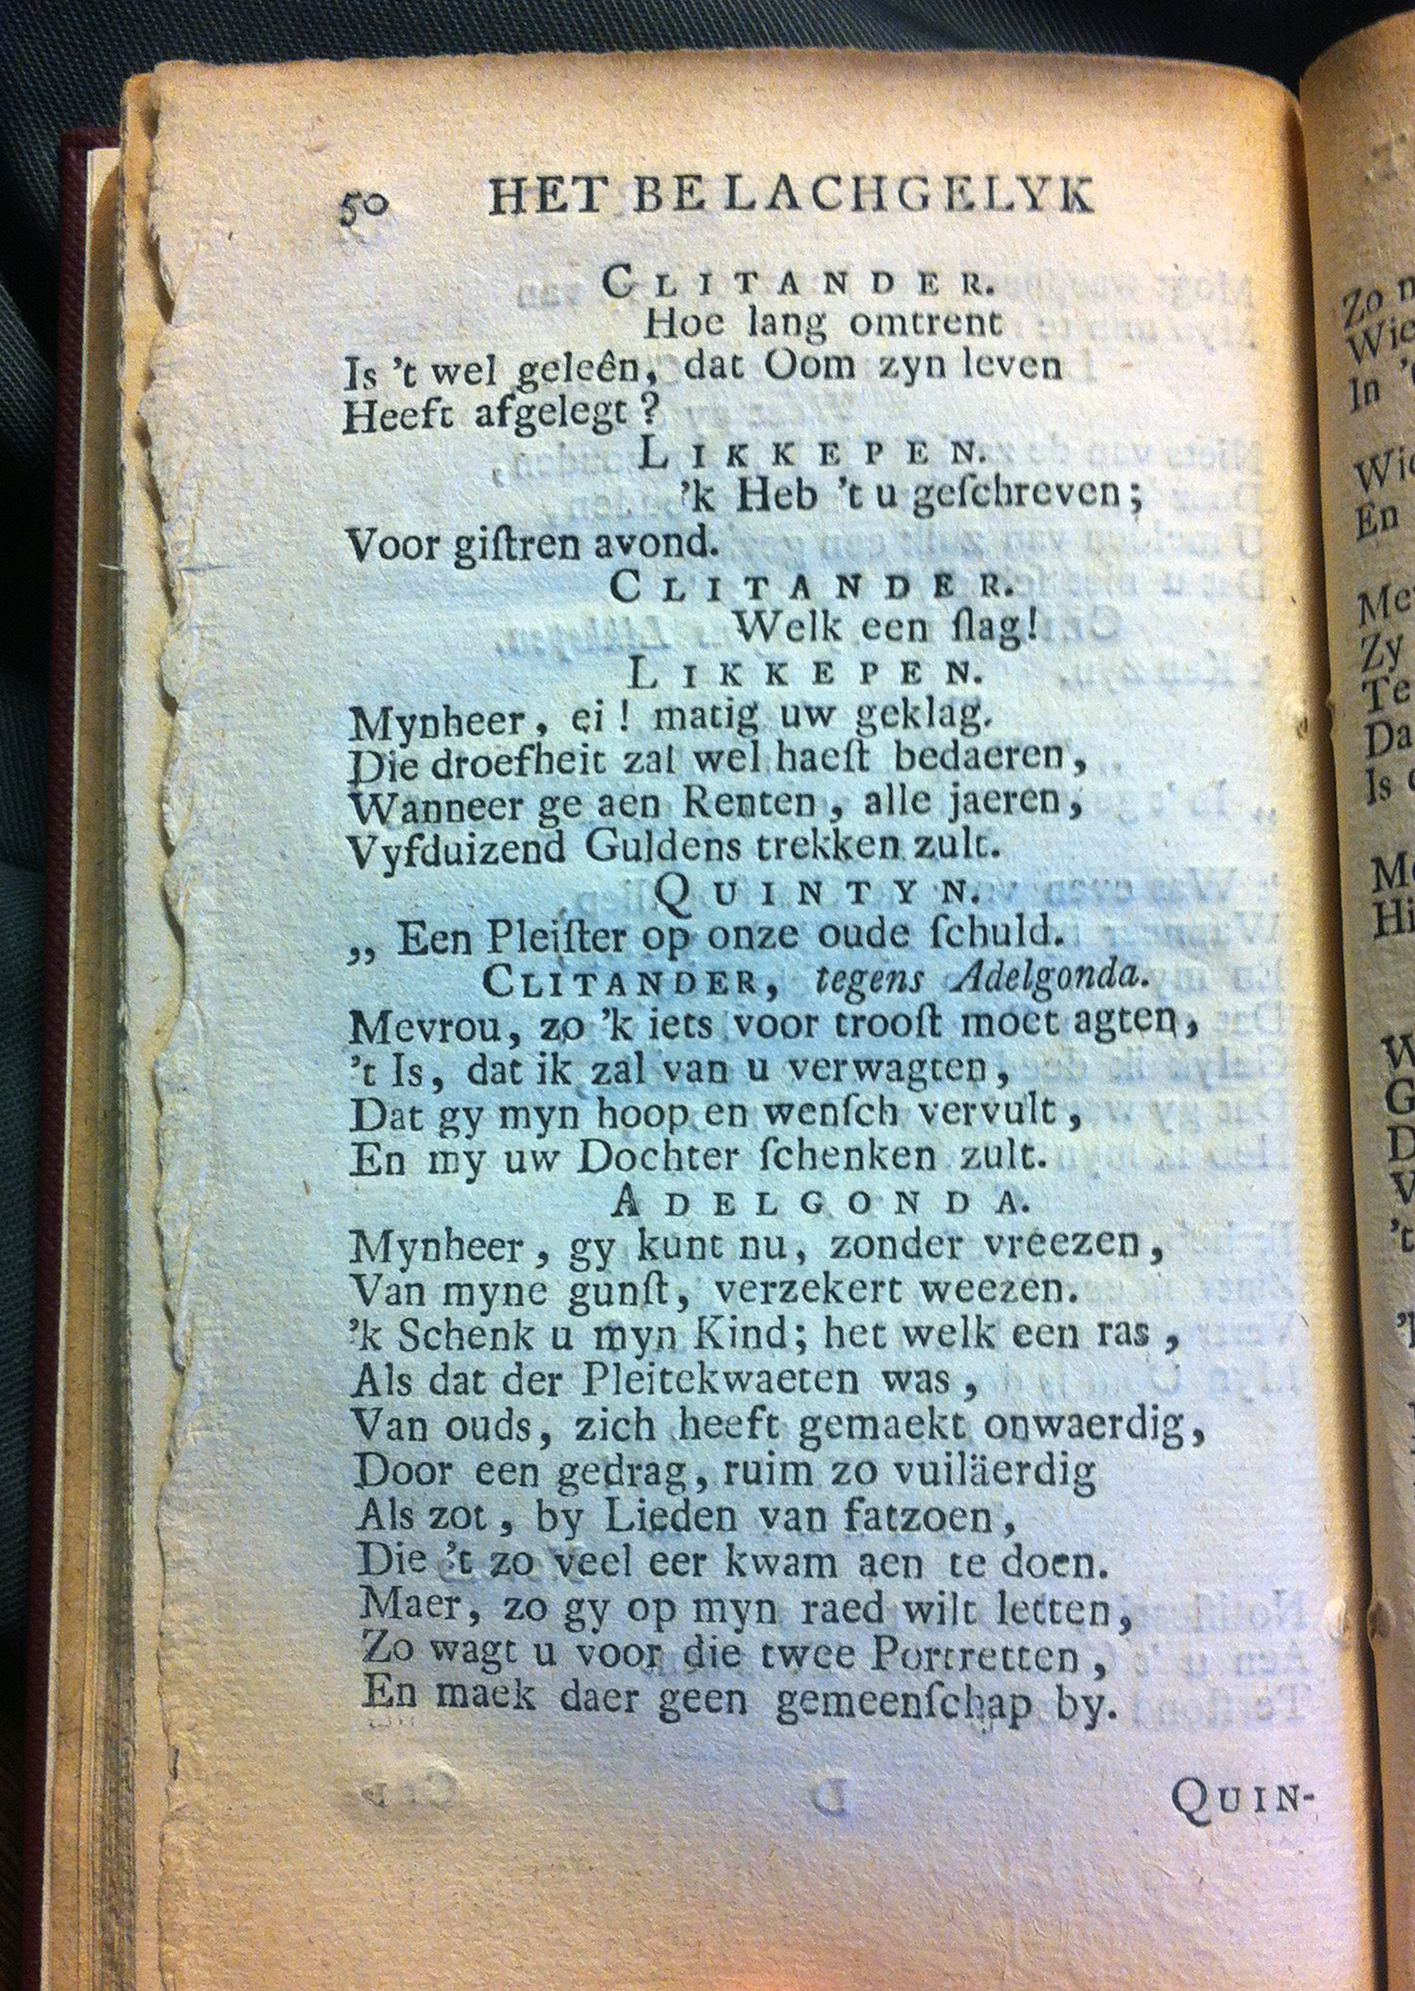 50 HET BELACHGELYK
CLITANDER.
Hoe lang omtrent
Is 't wel geleên, dat Oom zyn leven
Heeft afgelegt?
LIKKEPEN.
'k Heb 't u geſchreven;
Voor giſtren avond.
CLITANDER.
Welk een ſlag!
LIKKEPEN.
Mynheer, ei! matig uw geklag.
Die droefheit zal wel haeſt bedaeren,
Wanneer ge aen Renten, alle jaeren,
Vyfduizend Guldens trekken zult.
QUINTYN.
„ Een Pleiſter op onze oude ſchuld.
CLITANDER, tegens Adelgonda.
Mevrou, zo 'k iets voor trooſt moet agten,
't Is, dat ik zal van u verwagten,
Dat gy myn hoop en wenſch vervult,
En my uw Dochter ſchenken zult.
ADELGONDA.
Mynheer, gy kunt nu, zonder vreezen,
Van myne gunſt, verzekert weezen.
'k Schenk u myn Kind; het welk een ras,
Als dat der Pleitekwaeten was,
Van ouds, zich heeft gemaekt onwaerdig,
Door een gedrag, ruim zo vuiläerdig
Als zot, by Lieden van fatzoen,
Die 't zo veel eer kwam aen te doen.
Maer, zo gy op myn raed wilt letten,
Zo wagt u voor die twee Portretten,
En maek daer geen gemeenſchap by.
QUIN-
Zo
Wie
In
En
Zy
Te
Da
Is
Hi